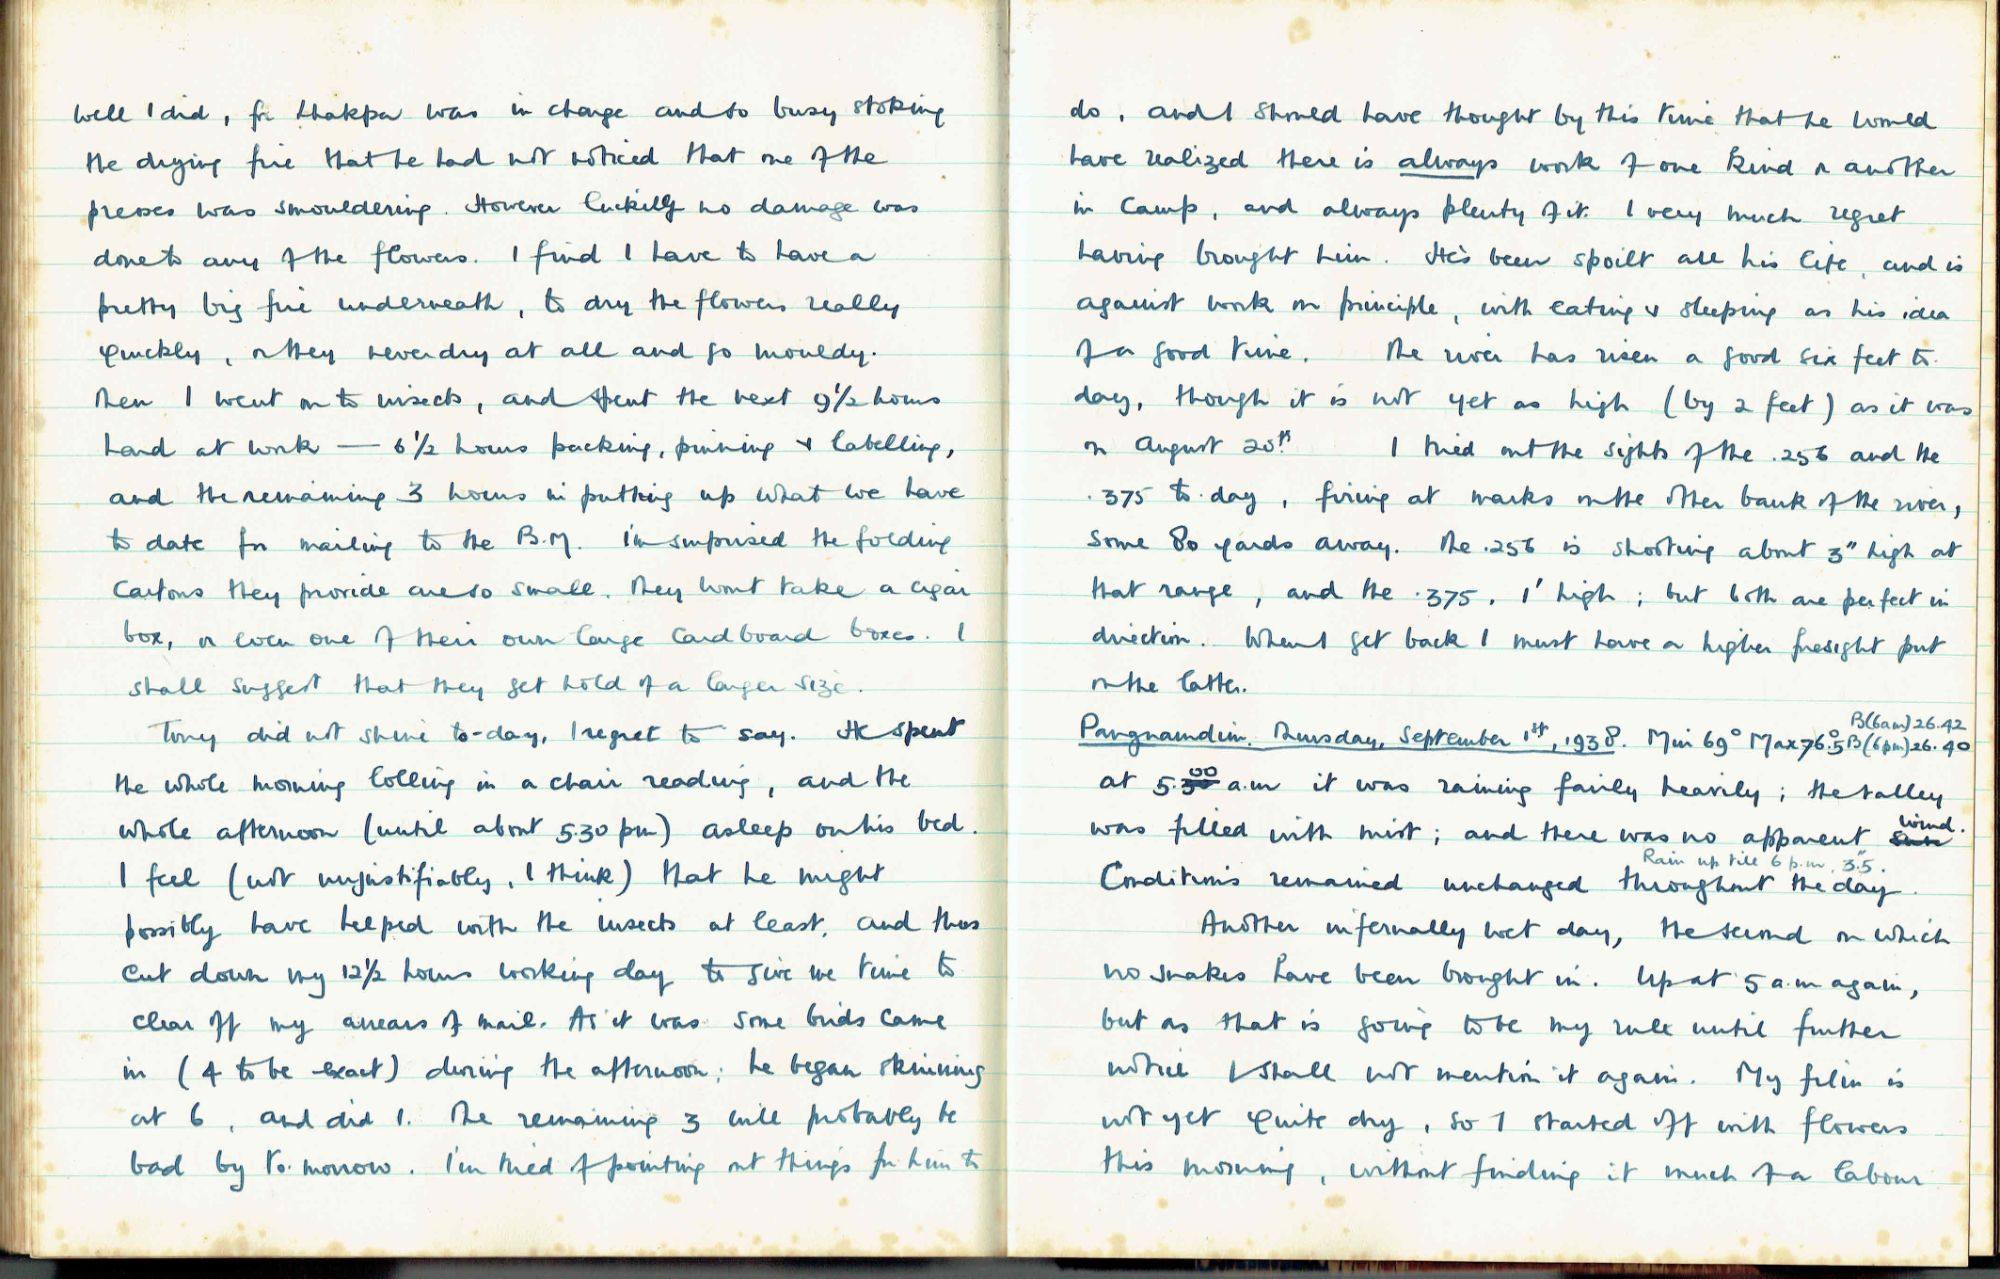 well I did, for Lhakpa was in charge and so busy stoking
the drying fire that he had not noticed that one of the
presses was smouldering. However luckily no damage was
done to any of the flowers. I find I have to have a
pretty big fire underneath, to dry the flowers really
quickly, or they never dry at all and go mouldy.
Then I went on to insects, and spent the next 9½ hours
hard at work — 6½ hours packing, pinning & labelling,
and the remaining 3 hours in putting up what we have
to date for mailing to the B.M. I'm surprised the folding
cartons they provide are so small. They wont take a cigar
box, or even one of their own large cardboard boxes. I
shall suggest that they get hold of a larger size.
Tony did not shine to-day, I regret to say. He spent
the whole morning lolling in a chair reading, and the
whole afternoon (until about 5.30 pm) asleep on his bed.
I feel (not unjustifiably, I think) that he might
possibly have helped with the insects at least, and thus
cut down my 12½ hours working day to give me time to
clear off my arrears of mail. As it was some birds came
in (4 to be exact) during the afternoon; he began skinning
at 6, and did 1. The remaining 3 will probably be
bad by to-morrow. I'm tired of pointing out things for him to
do, and I should have thought by this time that he would
have realized there is always work of one kind or another
in camp, and always plenty of it. I very much regret
having brought him. He's been spoilt all his life, and is
against work on principle, with eating & sleeping as his idea
of a good time. The river has risen a good six feet to-
day, though it is not yet as high (by 2 feet) as it was
on August 20th. I tried out the sights of the .256 and the
.375 to-day, firing at marks on the other bank of the river,
some 80 yards away. The .256 is shooting about 3" high at
that range, and the .375, 1' high; but both are perfect in
direction. When I get back I must have a higher foresight put
on the latter.
B(6am) 26.42
Pangnamdim. Thursday, September 1st, 1938. Min 69° Max 76.5° B(6pm) 26.40
at 5.00 a.m it was raining fairly heavily; the valley
was filled with mist; and there was no apparent wind.
Rain up till 6 p.m, 3.5".
Conditions remained unchanged throughout the day.
Another infernally wet day, the second on which
no snakes have been brought in. Up at 5 a.m again,
but as that is going to be my rule until further
notice I shall not mention it again. My film is
not yet quite dry, so I started off with flowers
this morning, without finding it much of a labour